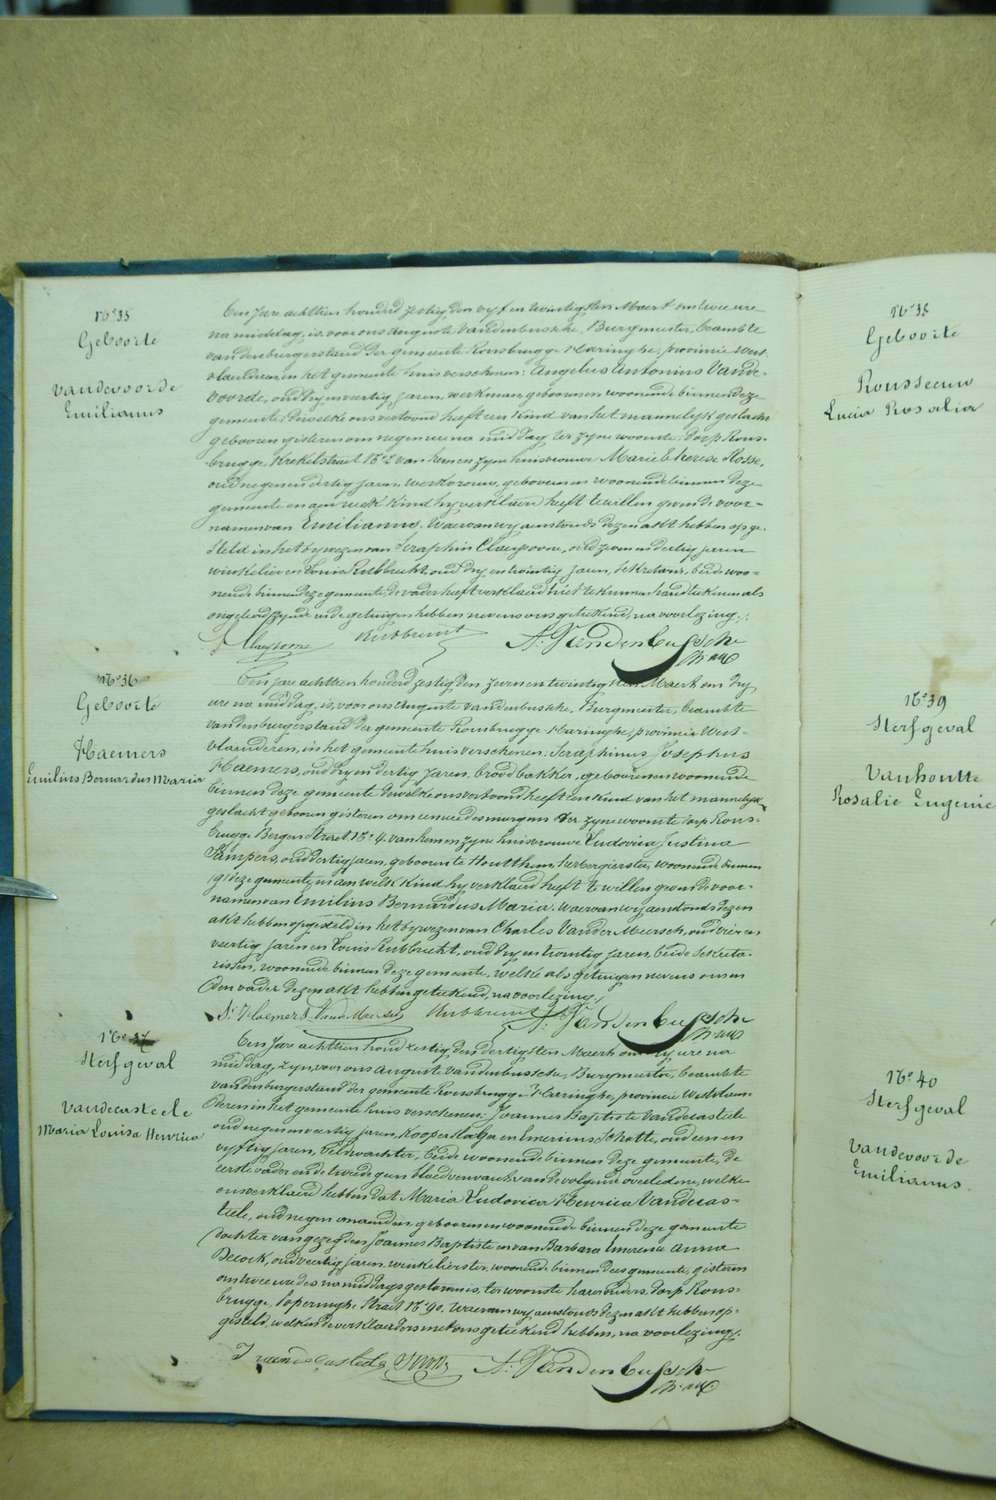 N° 35
Geboorte
Vandevoorde
Emilianus
Een jare achttien honderd zestig, den vyf en twintigsten Maert om twee ure
na middag, is, voor ons Auguste Vandenbussche, Burgmeester, beambte
van den burgerstand der gemeente Rousbrugge Haringhe, provincie West-
vlaenderen in het gemeente huis verschenen: Angelus Antonius Vande-
voorde, oud dry en veertig jaren, werkman geboren en woonende binnen deze
gemeente, dewelke ons vertoond heeft een kind van het mannelyk geslacht
geboren gisteren om negen ure na middag ter zyne woonste dorp Rous-
brugge, Krekelstraet N° 2 van hem en zyne huisvrouwe Marie Therese Rosse,
oud negen en dertig jaren, werkvrouw, geboren en woonende binnen deze
gemeente en aen welk kind hy verklaerd heeft te willen geven de voor-
namen van Emilianus. Waervan wy aenstonds dezen akt hebben opge-
steld in het bywezen van Seraphin Claeysoone, oud zeven en dertig jaren
winkelier en Louis Rubbrecht, oud dry en twintig jaren, sekretaris, beide woo-
nende binnen deze gemeente, de vader heeft verklaerd niet te kunnen handteekenen als
ongeleerd zynde en de getuigen hebben nevens ons geteekend, na voorlezing.
S. Claeysoone Rubbrecht A. Vandenbussche
N° 36
Geboorte
Haemers
Emilius Bernardus Maria
Een jare achttien honderd zestig, den zeven en twintigsten Maert om dry
ure na middag, is, voor ons Auguste Vandenbussche, Burgmeester, beambte
van den burgerstand der gemeente Rousbrugge Haringhe, provincie West-
vlaenderen, in het gemeente huis verschenen: Seraphinus Josephus
Haemers, oud dry en dertig jaren, broodbakker, geboren en woonende
binnen deze gemeente dewelke ons vertoond heeft een kind van het mannelyk
geslacht geboren gisteren om een ure des morgens ter zyne woonste dorp Rous-
brugge Bergen Straet N° 4. van hem en zyne huisvrouwe Ludovica Justina
Pampers, oud dertig jaren, geboren te Houtthem, herbergierster, woonende binnen
deze gemeente, en aen welk kind hy verklaerd heeft te willen geven de voor-
namen van Emilius Bernardus Maria. Waervan wy aenstonds dezen
akt hebben opgesteld in het bywezen van Charles Vander Meersch, oud vier en
veertig jaren en Louis Rubbrecht, oud dry en twintig jaren, beide sekreta-
rissen, woonende binnen deze gemeente, welke als getuigen nevens ons en
den vader dezen akt hebben geteekend, na voorlezing.
S. Haemers Vander Meersch Rubbrecht A. Vandenbussche
N° 37
Sterfgeval
Vandecasteele
Maria Louisa Henrica
Een jare achttien hond. zestig, den dertigsten Maert om dry ure na
middag, zyn, voor ons Auguste Vandenbussche, Burgmeester, beambte
van den burgerstand der gemeente Rousbrugge Haringhe, provincie Westvlaen-
deren in het gemeente huis verschenen: Joannes Baptiste Vandecasteele
oud negen en veertig jaren, koperslager en Emerinus Schotte, oud een en
vyftig jaren, veldwachter, beide woonende binnen deze gemeente, de
eerste vader en de tweede geen bloedverwant van de volgende overledene, welke
ons verklaerd hebben dat Maria Ludovica Henrica Vandecas-
teele, oud negen maenden, geboren en woonende binnen deze gemeente
dochter van gezegden Joannes Baptiste en van Barbara Emerence Anna
Decock, oud veertig jaren, winkelierster, woonende binnen dees gemeente, gisteren
om twee ure des namiddags gestorven is, ter woonste harer ouders, dorp Rous-
brugge, Poperinghe Straet N° 90. Waervan wy aenstonds dezen akt hebben op-
gesteld, welken de verklaerders met ons geteekend hebben, na voorlezing.
J Vandecasteele A. Vandenbussche
N° 38
Geboorte
Rousseeuw
Lucia Rosalia
N° 39
Sterfgeval
Vanhoutte
Rosalie Eugenie
N° 40
Sterfgeval
Vandevoorde
Emilianus